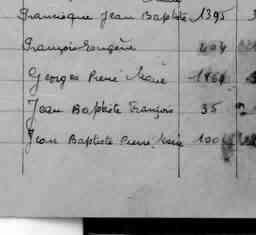 Francisque Jean Baptiste 1395
François Eugène 404
Georges Pierre Marie
Jean Baptiste François 35
Jean Baptiste Pierre Marie 100